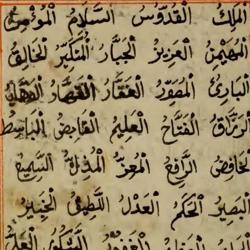 اَلْمَلِكُ اَلْقُدُّوسُ اَلسَّلَامُ اَلْمُؤْمِنُ
اَلْمُهَيْمِنُ اَلْعَزِيزُ اَلْجَبَّارُ اَلْمُتَكَبِّرُ اَلْخَالِقُ
اَلْبَارِئُ اَلْمُصَوِّرُ اَلْغَفَّارُ اَلْقَهَّارُ اَلْوَهَّابُ
اَلرَّزَّاقُ اَلْفَتَّاحُ اَلْعَلِيمُ اَلْقَابِضُ اَلْبَاسِطُ
اَلْخَافِضُ اَلرَّافِعُ اَلْمُعِزُّ اَلْمُذِلُّ اَلسَّمِيعُ
اَلْبَصِيرُ اَلْحَكَمُ اَلْعَدْلُ اَللَّطِيفُ اَلْخَبِيرُ